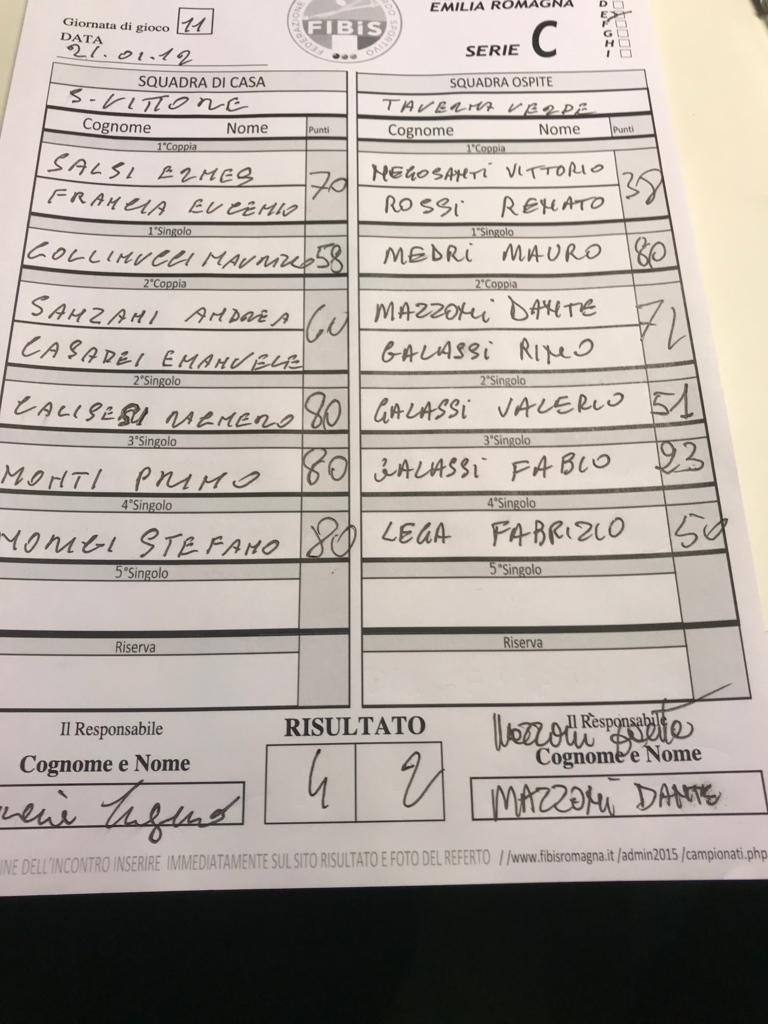 EMILIA ROMAGNA
Giornata di gioco 11
DATA
21.01.12
FIBiS
SERIE C
D
E
F
G
H
I
SQUADRA DI CASA
S-VITTORE
Cognome Nome Punti
1°Coppia
SALSI ERMES
70
FRANCIA EUGENIO
1°Singolo
58
2°Coppia
SANZANI ANDREA
60
CASADEI EMANUELE
2°Singolo
80
3°Singolo
MONTI PRIMO 80
4°Singolo
STEFANO 80
5°Singolo
Riserva
SQUADRA OSPITE
TAVERNA VERDE
Cognome Nome Punti
1°Coppia
NEGOSANTI VITTORIO
38
ROSSI RENATO
1°Singolo
MEDRI MAURO 80
2°Coppia
MAZZONI DANTE
GALASSI RINO
2°Singolo
GALASSI VALERIO 51
3°Singolo
GALASSI FABIO 23
4°Singolo
LEGA FABRIZIO 50
5°Singolo
Riserva
Il Responsabile
Cognome e Nome
RISULTATO
4 2
Il Responsabile
Cognome e Nome
MAZZONI DANTE
NE DELL'INCONTRO INSERIRE IMMEDIATAMENTE SUL SITO RISULTATO E FOTO DEL REFERTO //www.fibisromagna.it /admin2015 /campionati.php